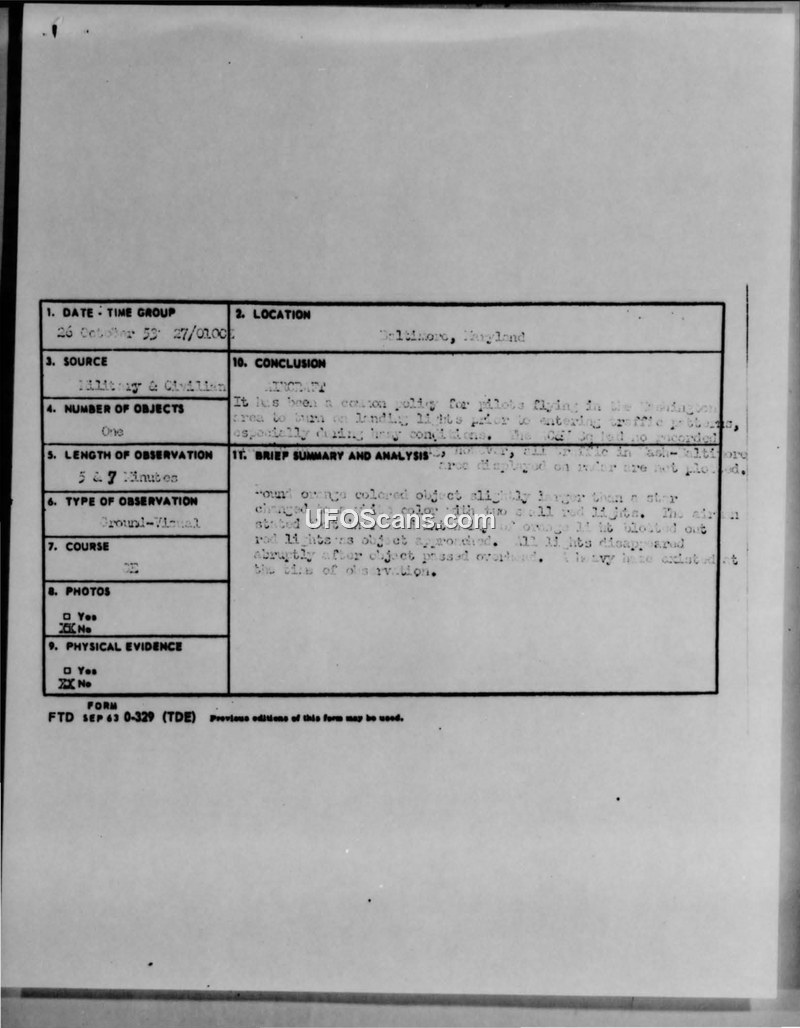 1. DATE - TIME GROUP
26 October 53 27/0100Z
2. LOCATION
Baltimore, Maryland
3. SOURCE
Military & Civilian
4. NUMBER OF OBJECTS
One
5. LENGTH OF OBSERVATION
5 & 7 Minutes
6. TYPE OF OBSERVATION
Ground-Visual
7. COURSE
8. PHOTOS
□ Yes
XX No
9. PHYSICAL EVIDENCE
□ Yes
XX No
10. CONCLUSION
AIRCRAFT
It has been a common policy for pilots flying in the Washington
area to turn on landing lights prior to entering traffic patterns,
especially during hazy conditions. The had no recorded
however, all traffic in Wash-Baltimore
area displayed on radar are not plotted.
11. BRIEF SUMMARY AND ANALYSIS
round orange colored object slightly larger than a star
changed color with two small red lights. The airman
stated orange light blotted out
red lights as object approached. All lights disappeared
abruptly after object passed overhead. A heavy haze existed at
the time of observation.
UFOScans.com
FORM
FTD SEP 63 0-329 (TDE) Previous editions of this form may be used.